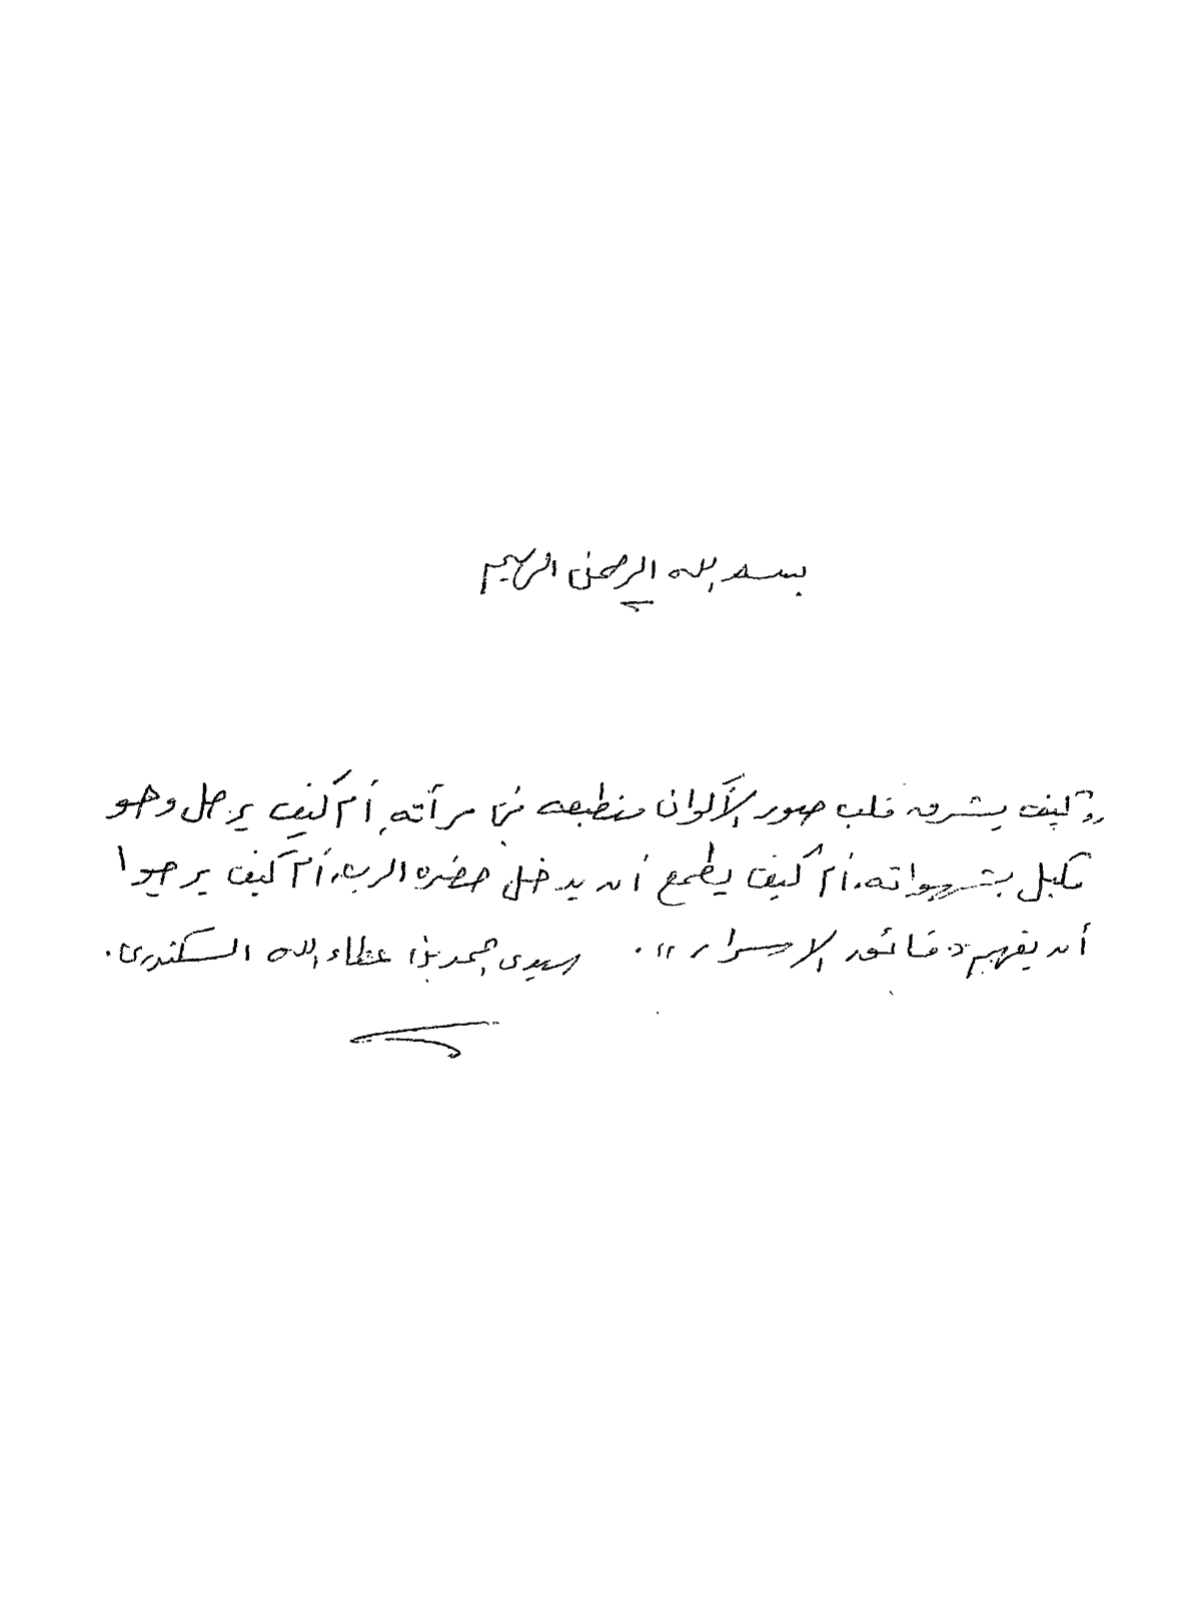 بسم الله الرحمن الرحيم
"كيف يشرق قلب صور الأكوان منطبعه في مرآته، أم كيف يرحل وهو
مكبل بشهواته، أم كيف يطمع أن يدخل حضره الرب، أم كيف يرجوا
أن يفهم دقائق الاسرار". سيدى احمد بن عطاء الله السكندرى.